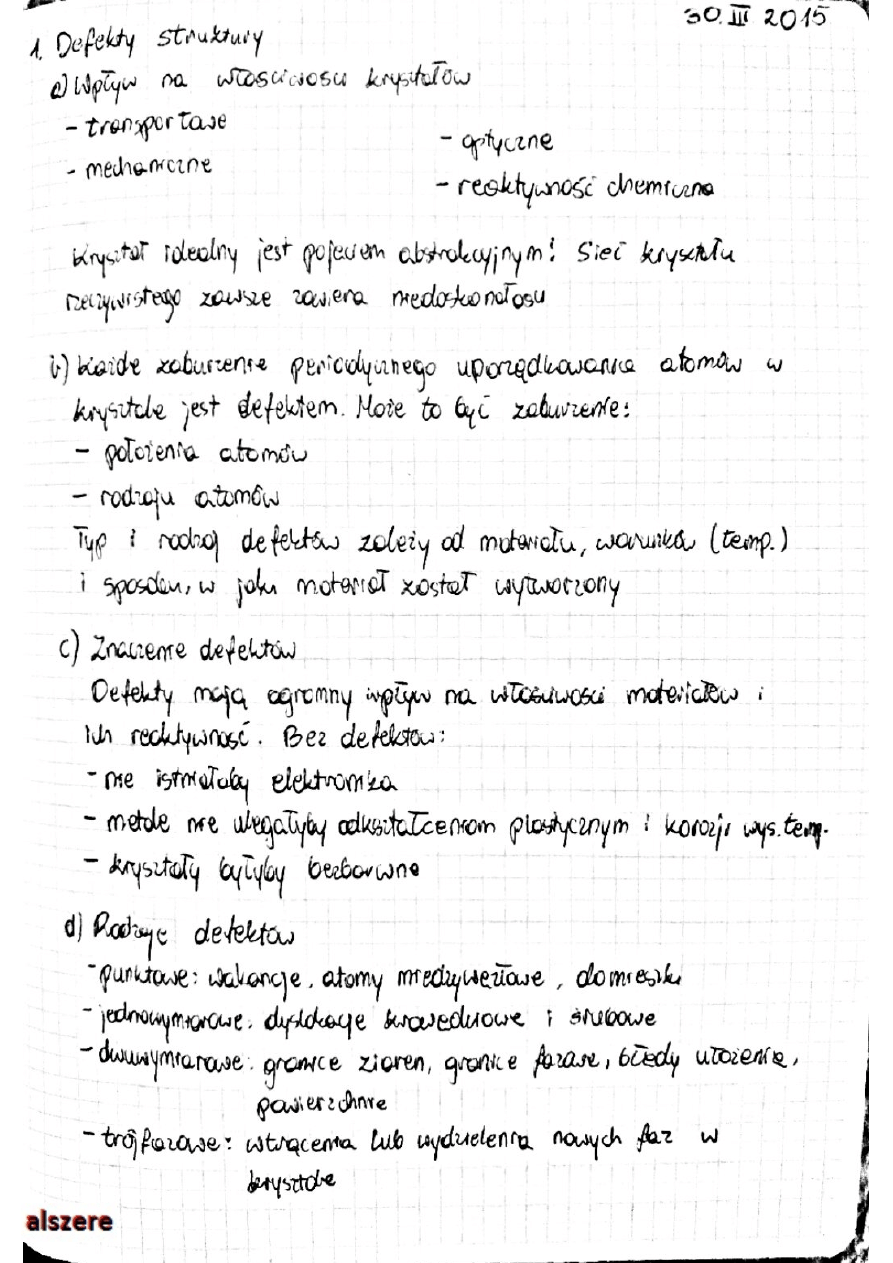 30. III 2015
1. Defekty struktury
a) Wpływ na właściwości kryształów
- transportowe
- mechaniczne
- optyczne
- reaktywność chemiczna
Kryształ idealny jest pojęciem abstrakcyjnym! Sieć kryształu
rzeczywistego zawsze zawiera niedoskonałości
b) Każde zaburzenie periodycznego uporządkowania atomów w
krysztale jest defektem. Może to być zaburzenie:
- położenia atomów
- rodzaju atomów
Typ i rodzaj defektów zależy od materiału, warunków (temp.)
i sposobu, w jaki materiał został wytworzony
c) Znaczenie defektów
Defekty mają ogromny wpływ na właściwości materiałów i
ich reaktywność. Bez defektów:
- nie istniałaby elektronika
- metale nie ulegałyby odkształceniom plastycznym i korozji wys. temp.
- kryształy byłyby bezbarwne
d) Rodzaje defektów
- punktowe: wakancje, atomy międzywęzłowe, domieszki
- jednowymiarowe: dyslokacje krawędziowe i śrubowe
- dwuwymiarowe: granice ziaren, granice fazowe, błędy ułożenia,
powierzchnie
- trójfazowe: wtrącenia lub wydzielenia nowych faz w
krysztale
alszere